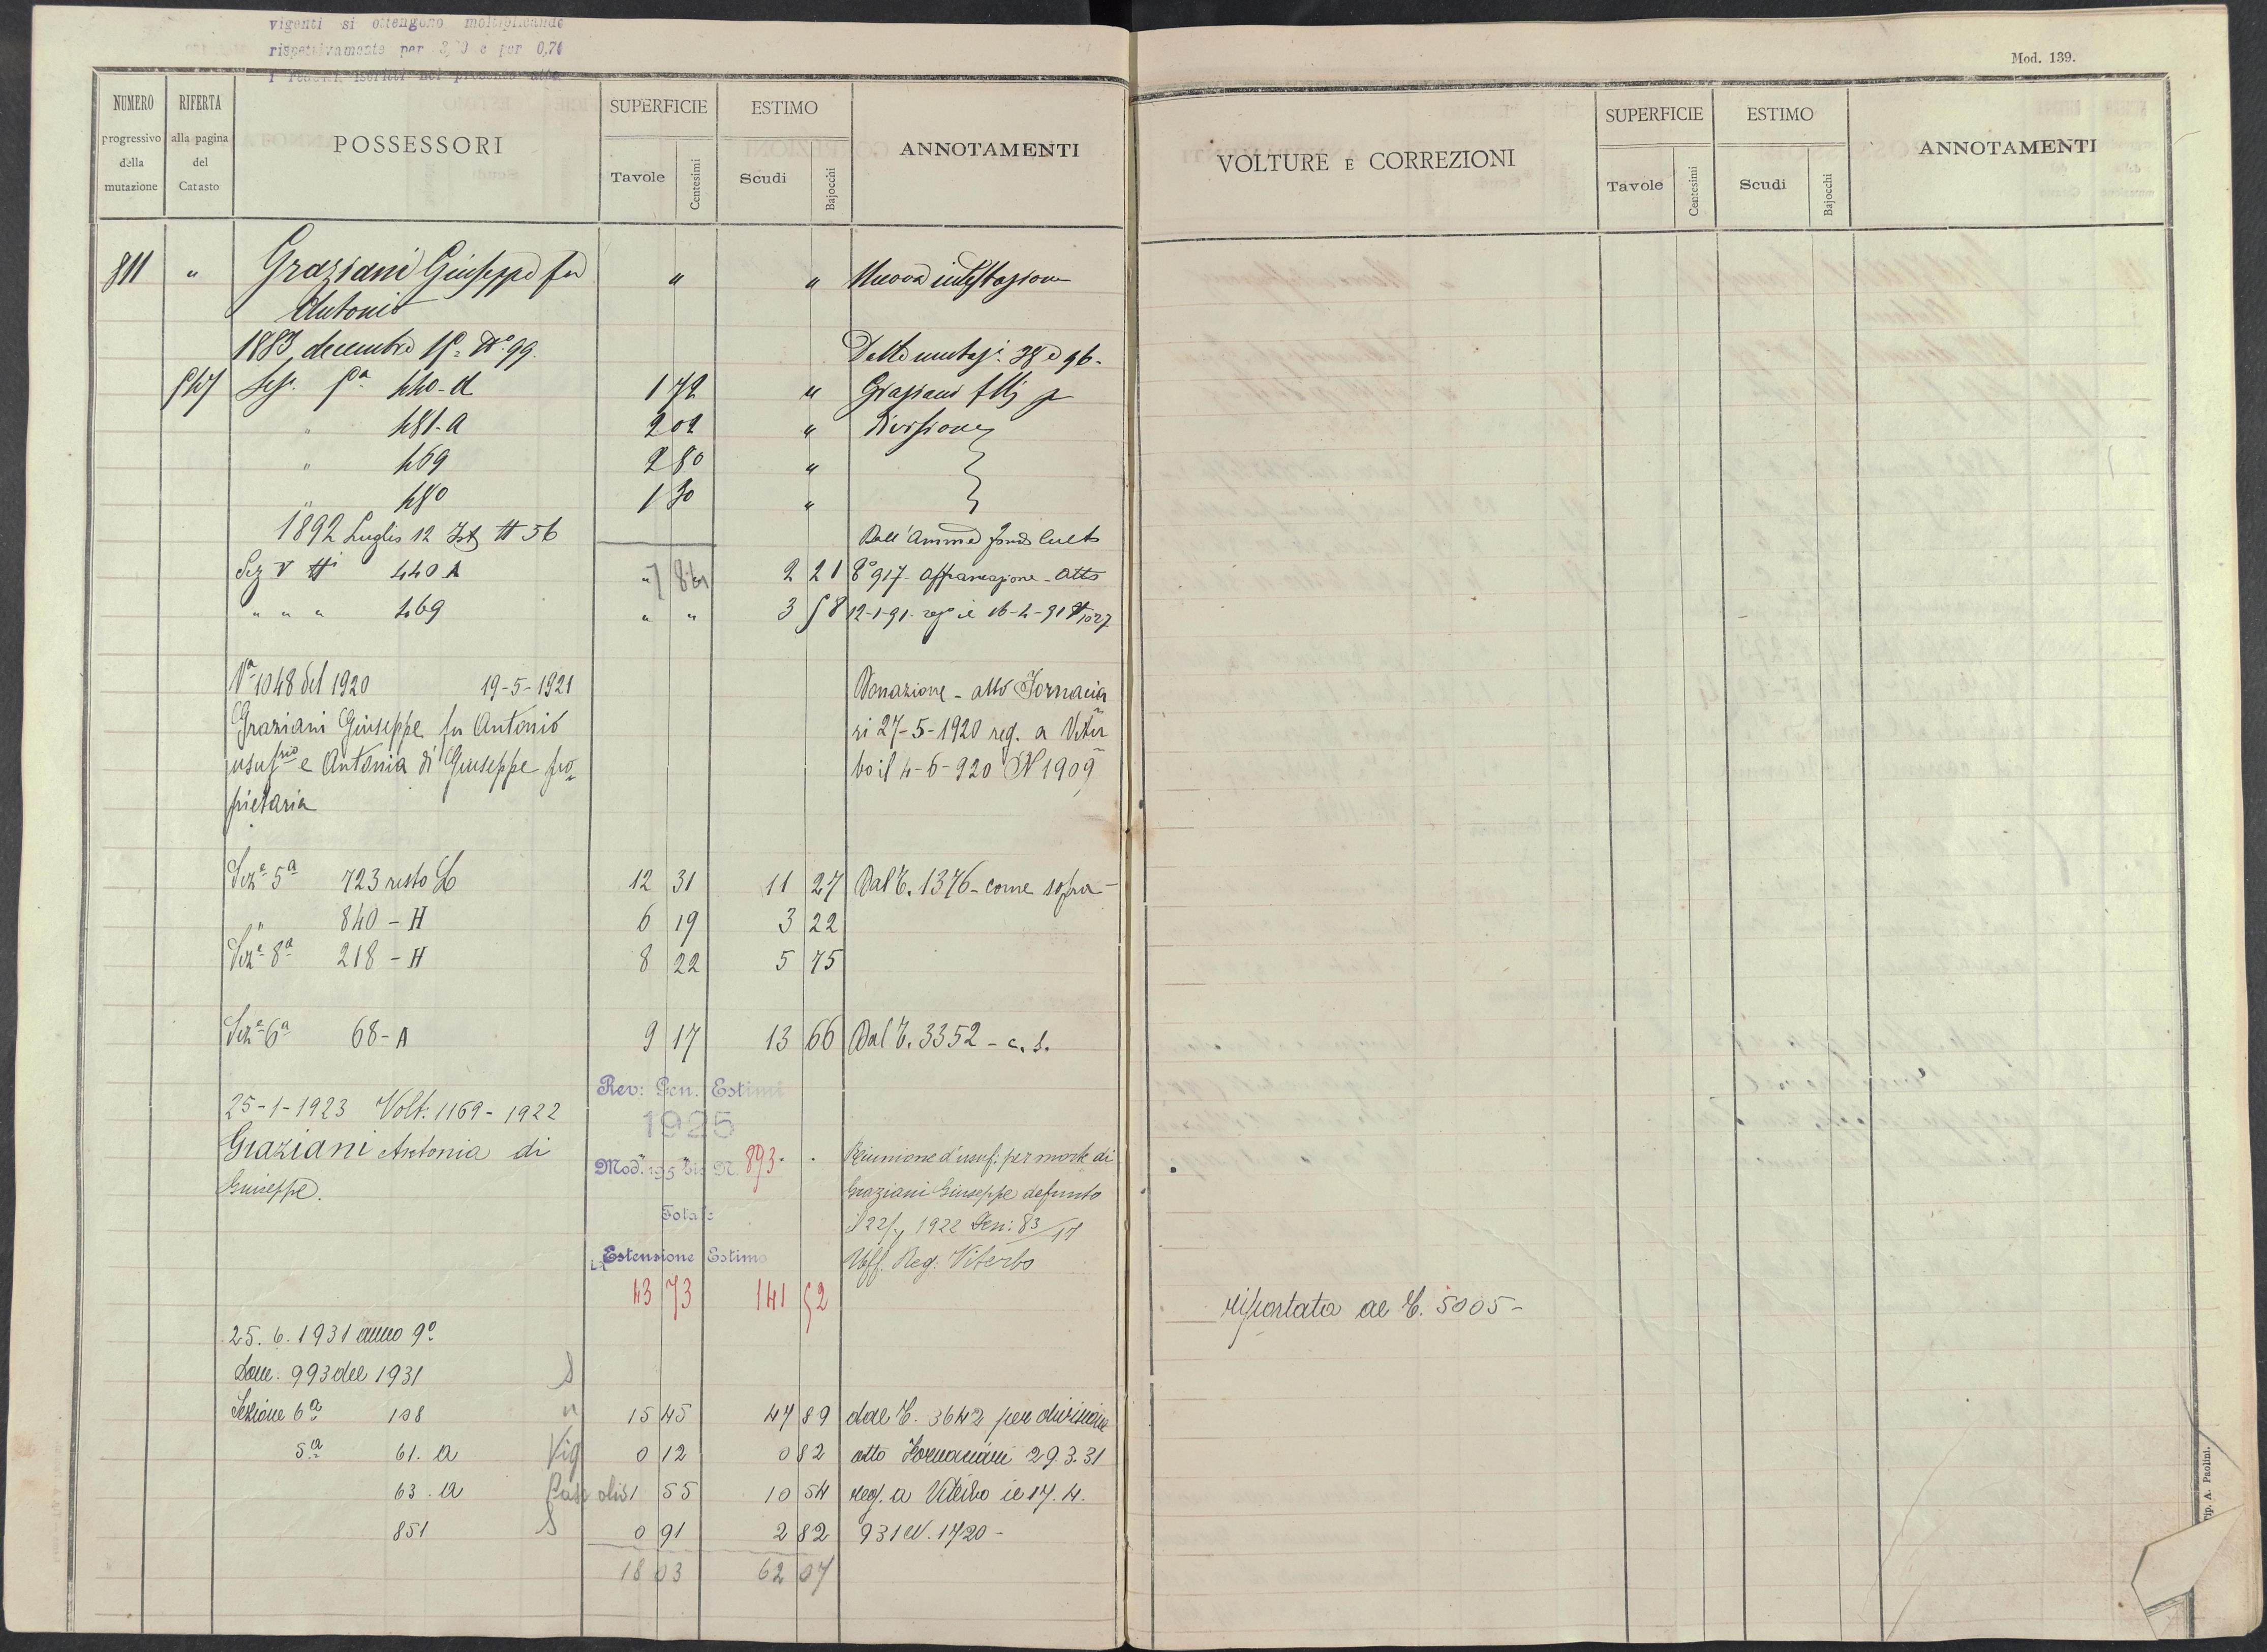 vigenti si ottengono moltiplicando
rispettivamente per 3,  0 e per 0,70
i redditi iscritti nel presente atto
Mod. 139.
NUMERO progressivo della mutazione
RIFERTA alla pagina del Catasto
POSSESSORI
SUPERFICIE Tavole Centesimi
ESTIMO Scudi Bajocchi
ANNOTAMENTI
VOLTURE E CORREZIONI
SUPERFICIE Tavole Centesimi
ESTIMO Scudi Bajocchi
ANNOTAMENTI
811 " Graziani Giuseppe fu " " Nuova intestazione
Antonio
1883 decembre 15 N° 99. Dalle mutaz. 38 e 96.
Sez. 5a 440-A 1 72 " Graziani flli p
" 481-A 2 02 " divisione
" 469 2 80 "
" 480 1 30 "
1892 Luglio 12 Ist N 56 Dall'Amm.e fondo Culto
Sez V N 440 A " 7 86 2 21 8° 917 - Affrancazione - Atto
" " " 469 " " 3 58 12-1-91- reg° il 16-4-91 N 1027
N° 1048 del 1920 19-5-1921 Donazione - atto Fornacia
Graziani Giuseppe fu Antonio ri 27-5-1920 reg. a Viter
usuf.rio e Antonia di Giuseppe pro= bo il 4-6-920 N 1909
prietaria
Sez.e 5a 723 resto L 12 31 11 27 Dal C. 1376 - come sopra -
" 840 - H 6 19 3 22
Sez.e 8a 218 - H 8 22 5 75
Sez.e 6a 68 - A 9 17 13 66 Dal C. 3352 - c. s.
Rev: Gen. Estimi
25-1-1923 Volt: 1169 - 1922
1925
Graziani Antonia di Reunione d'usuf: per morte di
Mod. 195 bis N. 893.
Giuseppe. Graziani Giuseppe defunto
Totale il 22/ 1922 Den: 83/17
Estensione Estimo Uff. Reg. Viterbo
43 73 141 52
riportata al C. 5005 -
25. 6. 1931 anno 9°
Dom. 993 del 1931 S
Sezione 6a 108 " 15 45 47 89 dal C. 3642 per divisione
5a 61. A Vig 0 12 0 82 atto Fornaciari 29.3.31
63. A Pasc oliv 1 55 10 54 reg. a Viterbo il 17. 4.
851 S 0 91 2 82 931 N. 1720 -
18 03 62 07
Tip. A. Paolini.